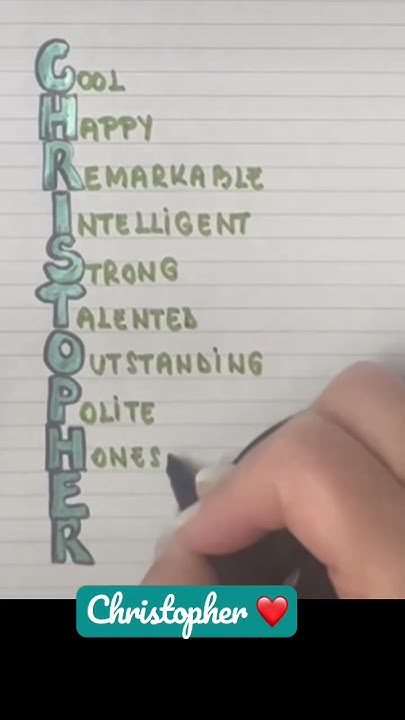 COOL
HAPPY
REMARKABLE
INTELLiGENT
STRONG
TALENTED
OUTSTANDiNG
POLiTE
HONES
E
R
Christopher ❤️